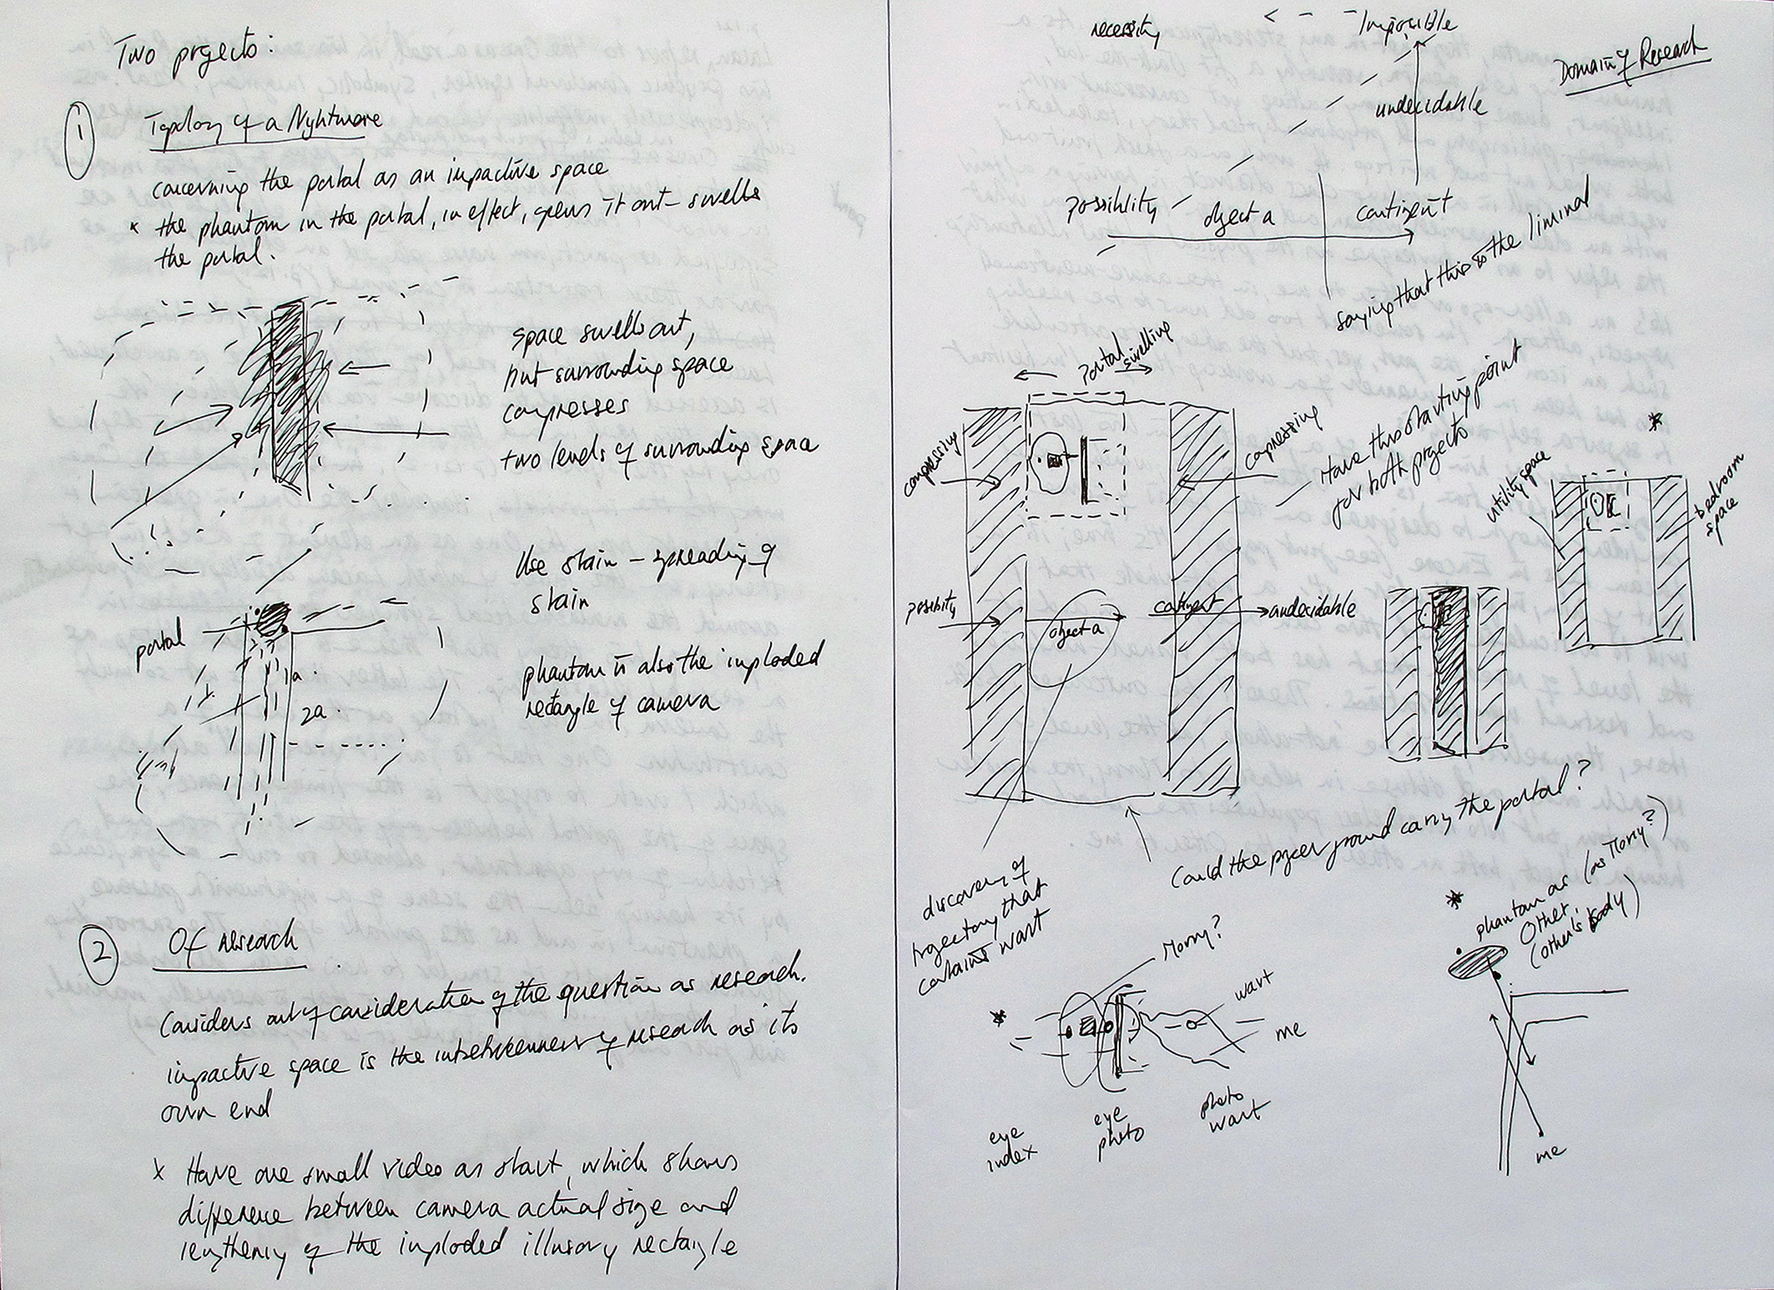 Two projects:
1
Topology of a Nightmare
concerning the portal as an impactive space
* the phantom in the portal, in effect, opens it out - swells
the portal.
space swells out,
but surrounding space
compresses
two levels of surrounding space
Use stain - spreading of
stain
portal
1a.
2a.
phantom is also the imploded
rectangle of camera
2
Of research
Considers out of consideration of the question as research.
impactive space is the inbetweenness of research as its
own end
x Have one small video as start, which shows
difference between camera actual size and
lengthening of the imploded illusory rectangle
necessity
Impossible
Domain of Research
undecidable
possibility
object a
contingent
saying that this is the liminal
Portal swelling
compressing
compressing
Have this starting point
for both projects
*
utility space
bedroom
space
possibility
object a
contingent
undecidable
Could the picture ground carry the portal?
discovery of
trajectory that
contains wart
*
phantom as (as Morry?)
Other,
(other's body)
Morry?
*
wart
me
eye
index
eye
photo
photo
wart
me